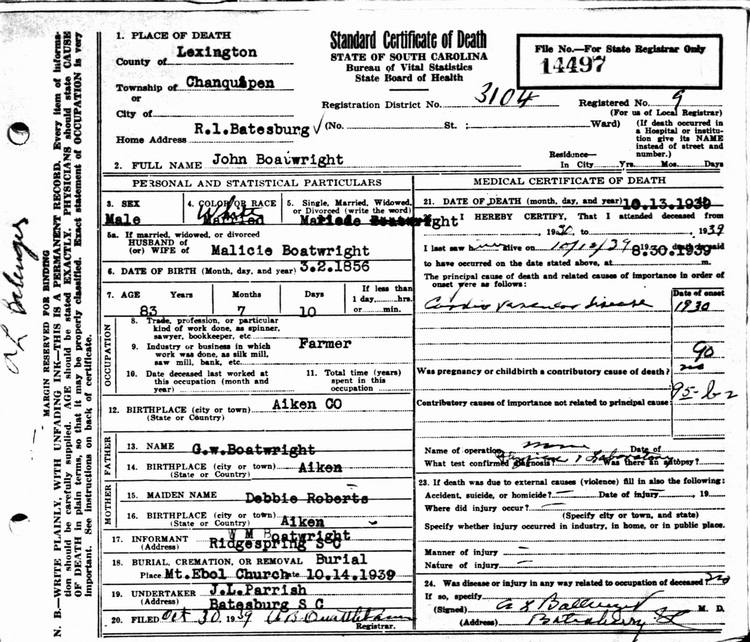 1. PLACE OF DEATH
County of Lexington
Township of Chanquipen
or
City of
R.1.Batesburg (No. St.; Ward)
Home Address
2. FULL NAME John Boatwright
Standard Certificate of Death
STATE OF SOUTH CAROLINA
Bureau of Vital Statistics
State Board of Health
File No.—For State Registrar Only
14497
Registration District No. 3104 Registered No. 9
(For us of Local Registrar)
(If death occurred in
a Hospital or institu-
tion give its NAME
instead of street and
number.)
Residence—
In City Yrs. Mos. Days
PERSONAL AND STATISTICAL PARTICULARS
3. SEX
Male
4. COLOR OR RACE
White
Married
5. Single, Married, Widowed,
or Divorced (write the word)
5a. If married, widowed, or divorced
HUSBAND of
(or) WIFE of Malicie Boatwright
6. DATE OF BIRTH (Month, day, and year) 3.2.1856
7. AGE Years Months Days If less than
1 day, hrs.
or min.
83 7 10
OCCUPATION
8. Trade, profession, or particular
kind of work done, as spinner,
sawyer, bookkeeper, etc.
9. Industry or business in which
work was done, as silk mill,
saw mill, bank, etc.
Farmer
10. Date deceased last worked at
this occupation (month and
year)
11. Total time (years)
spent in this
occupation
12. BIRTHPLACE (city or town) Aiken CO
(State or Country)
FATHER
13. NAME G.w.Boatwright
14. BIRTHPLACE (city or town) Aiken
(State or Country)
MOTHER
15. MAIDEN NAME Debbie Roberts
16. BIRTHPLACE (city or town) Aiken
(State or Country)
17. INFORMANT W M Boatwright
(Address) Ridgespring S C
18. BURIAL, CREMATION, OR REMOVAL Burial
Place Mt.Ebol Church Date 10.14.1939
19. UNDERTAKER J.L.Parrish
(Address) Batesburg S C
20. FILED Oct 30 1939
Registrar.
MEDICAL CERTIFICATE OF DEATH
21. DATE OF DEATH (month, day, and year) 10.13.1939
I HEREBY CERTIFY, That I attended deceased from
1930 to 1939
I last saw h alive on 10/12/39 death is said
8.30.1939
to have occurred on the date stated above, at m.
The principal cause of death and related causes of importance in order of
onset were as follows:
Date of onset
Cardio vascular disease 1930
90
Was pregnancy or childbirth a contributory cause of death? no
95-b2
Contributory causes of importance not related to principal cause:
Name of operation none Date of
What test confirmed diagnosis? Was there an autopsy?
23. If death was due to external causes (violence) fill in also the following:
Accident, suicide, or homicide? Date of injury 19
Where did injury occur?
(Specify city or town, and state)
Specify whether injury occurred in industry, in home, or in public place.
Manner of injury
Nature of injury
24. Was disease or injury in any way related to occupation of deceased? no
If so, specify
(Signed) M. D.
(Address)
MARGIN RESERVED FOR BINDING
N. B.—WRITE PLAINLY, WITH UNFADING INK—THIS IS A PERMANENT RECORD. Every item of informa-
tion should be carefully supplied. AGE should be stated EXACTLY. PHYSICIANS should state CAUSE
OF DEATH in plain terms, so that it may be properly classified. Exact statement of OCCUPATION is very
important. See instructions on back of certificate.